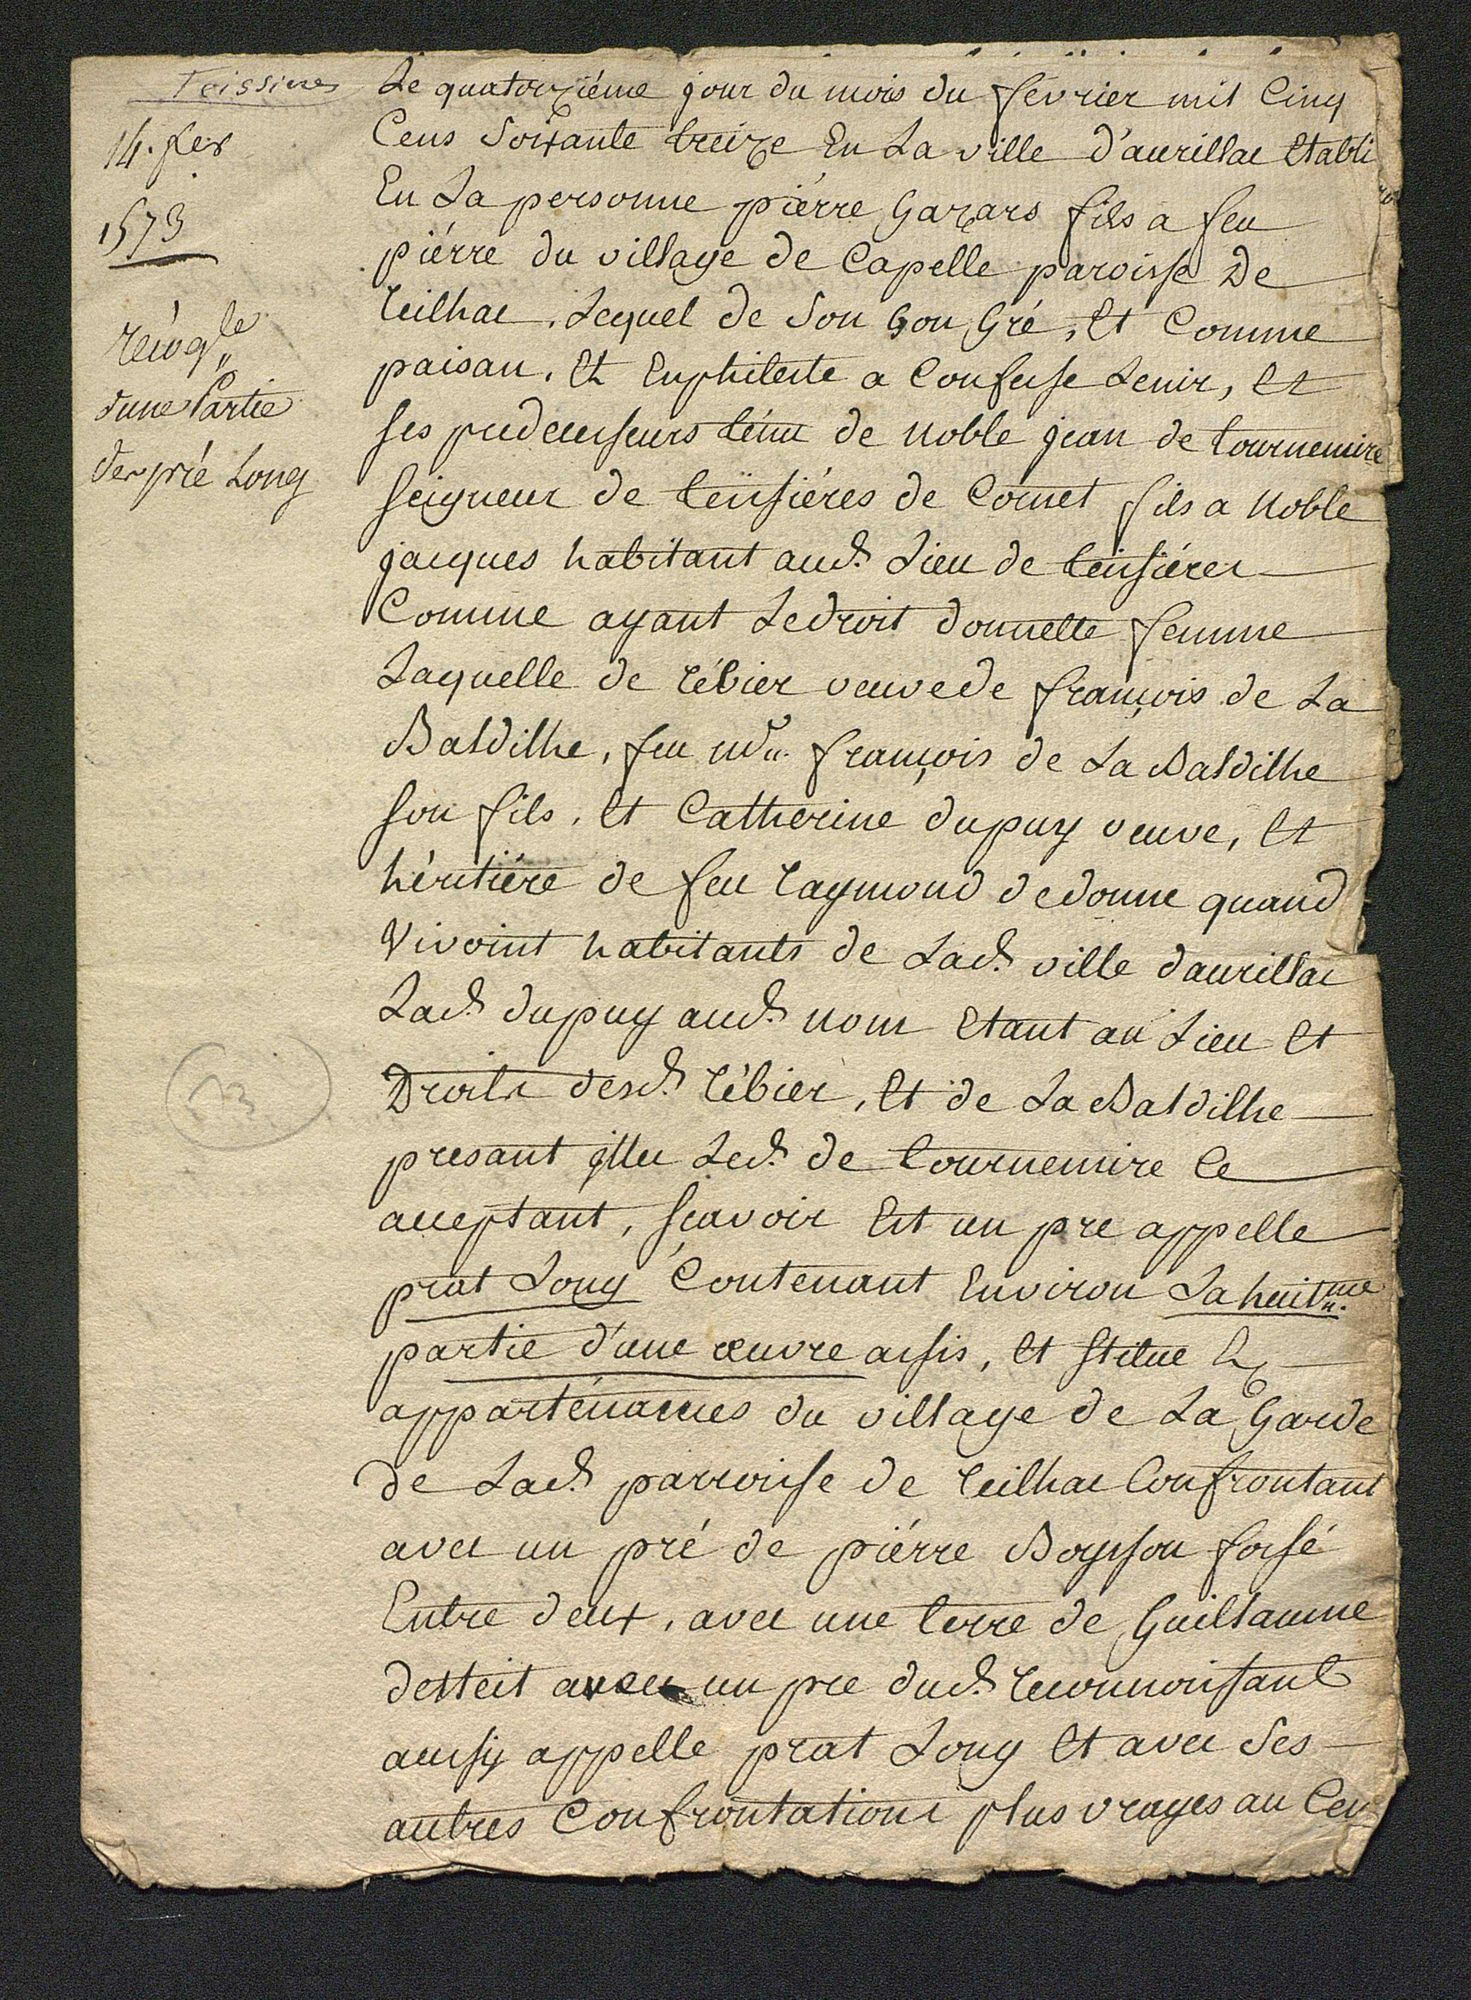 Teissires
14. fer
1573
recogle
dune Partie
der pré Long
Le quatorziéme jour du mois du fevrier mil Cinq
Cens Soixante treize En La ville d'aurillac Etabli
En La personne piérre Gazars fils a feu
piérre du village de Capelle paroisse De
teilhac, Lequel de Son bon Gré, Et Comme
paisan, Et Enphiteote a Confesse tenir, Et
ses predecesseurs ténu de Noble jean de tournemire
Seigneur de teissiéres de Cornet fils a Noble
jacques habitant aud. Lieu de teissiéres
Comme ayant Le droit donnette femme
Laquelle de rébier veuve de françois de La
Baldilhe, feu françois de La Baldilhe
son fils, Et Catherine dupuy veuve, Et
héritiére de feu raymond de donne quand
Vivoint habitants de Lad. ville daurillac
Lad. dupuy aud. nom Etant au Lieu Et
Droits desd. rébier, Et de La Baldilhe
presant illec Led. de tournemire ce
acceptant, sçavoir Est un pre appelle
prat Long Contenant Environ La huitme
partie d'une œuvre assis, Et Stitue Ez
appartenances du village de La Garde
de Lad. parroisse de teilhac Confrontant
avec un pré de piérre Boysson fossé
Entre deux, avec une terre de Guillaume
destteit avec un pre dud. reconnoissant
aussy appelle prat Long Et avec Ses
autres Confrontations plus vrayes au Cens